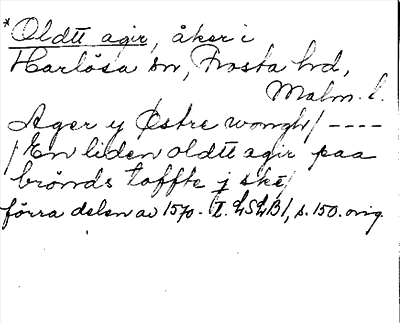 *Oldtt agir, åker i
Harlösa sn, Frosta hd,
Malm. l.
Ager y Østre wongh/ ----
/En liden oldtt agir paa
brönds toffte j ske/
förra delen av 1570-t. LSLB1, s. 150. orig.